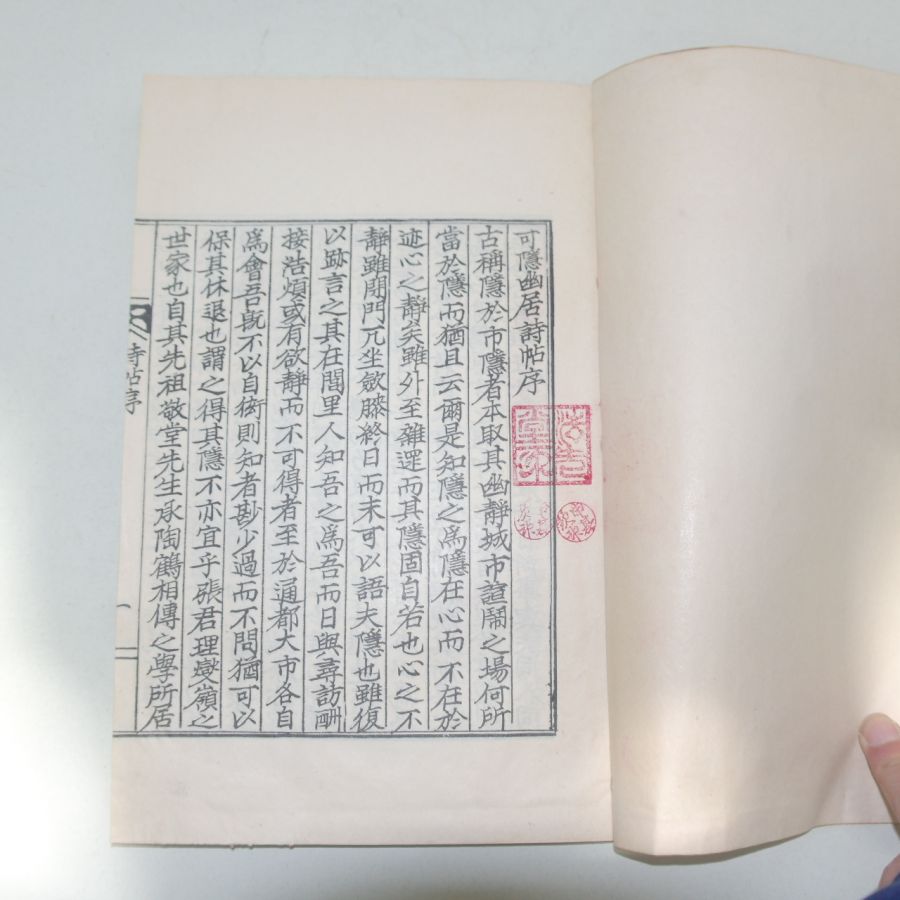 可隱幽居詩帖序
古稱隱於市隱者本取其幽靜城市諠鬧之場何所
當於隱而猶且云爾是知隱之爲隱在心而不在於
迹心之靜矣雖外至雜遝而其隱固自若也心之不
靜雖閉門兀坐斂膝終日而未可以語夫隱也雖復
以跡言之其在閭里人知吾之爲吾而日與尋訪酬
接浩煩或有欲靜而不可得者至於通都大市各自
爲會吾旣不以自衒則知者尠少過而不問猶可以
保其休退也謂之得其隱不亦宜乎張君理燮嶺之
世家也自其先祖敬堂先生承陶鶴相傳之學所居
詩帖序
一